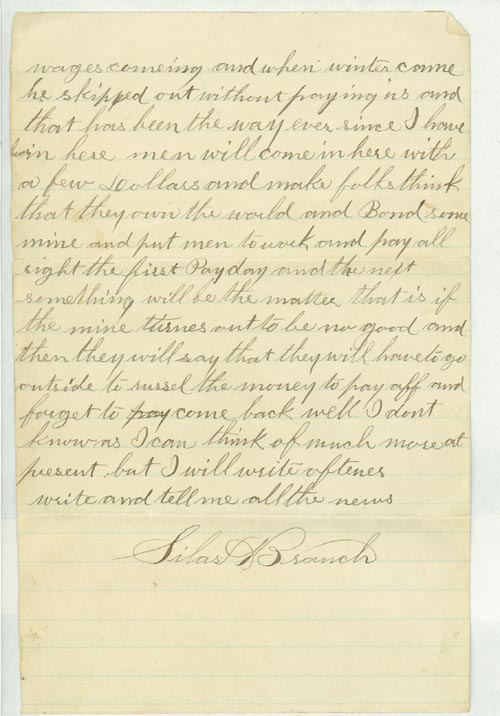 wages comeing and when winter came
he skipped out without paying us and
that has been the way ever since I have
been in here men will come in here with
a few Dollars and make folks think
that they own the world and Bond some
mine and put men to work and pay all
right the first Payday and the next
something will be the matter that is if
the mine turnes out to be no good and
then they will say that they will have to go
outside to russel the money to pay off and
forget to pay come back well I dont
know as I can think of much more at
present but I will write oftener
write and tell me all the news
Silas Branch